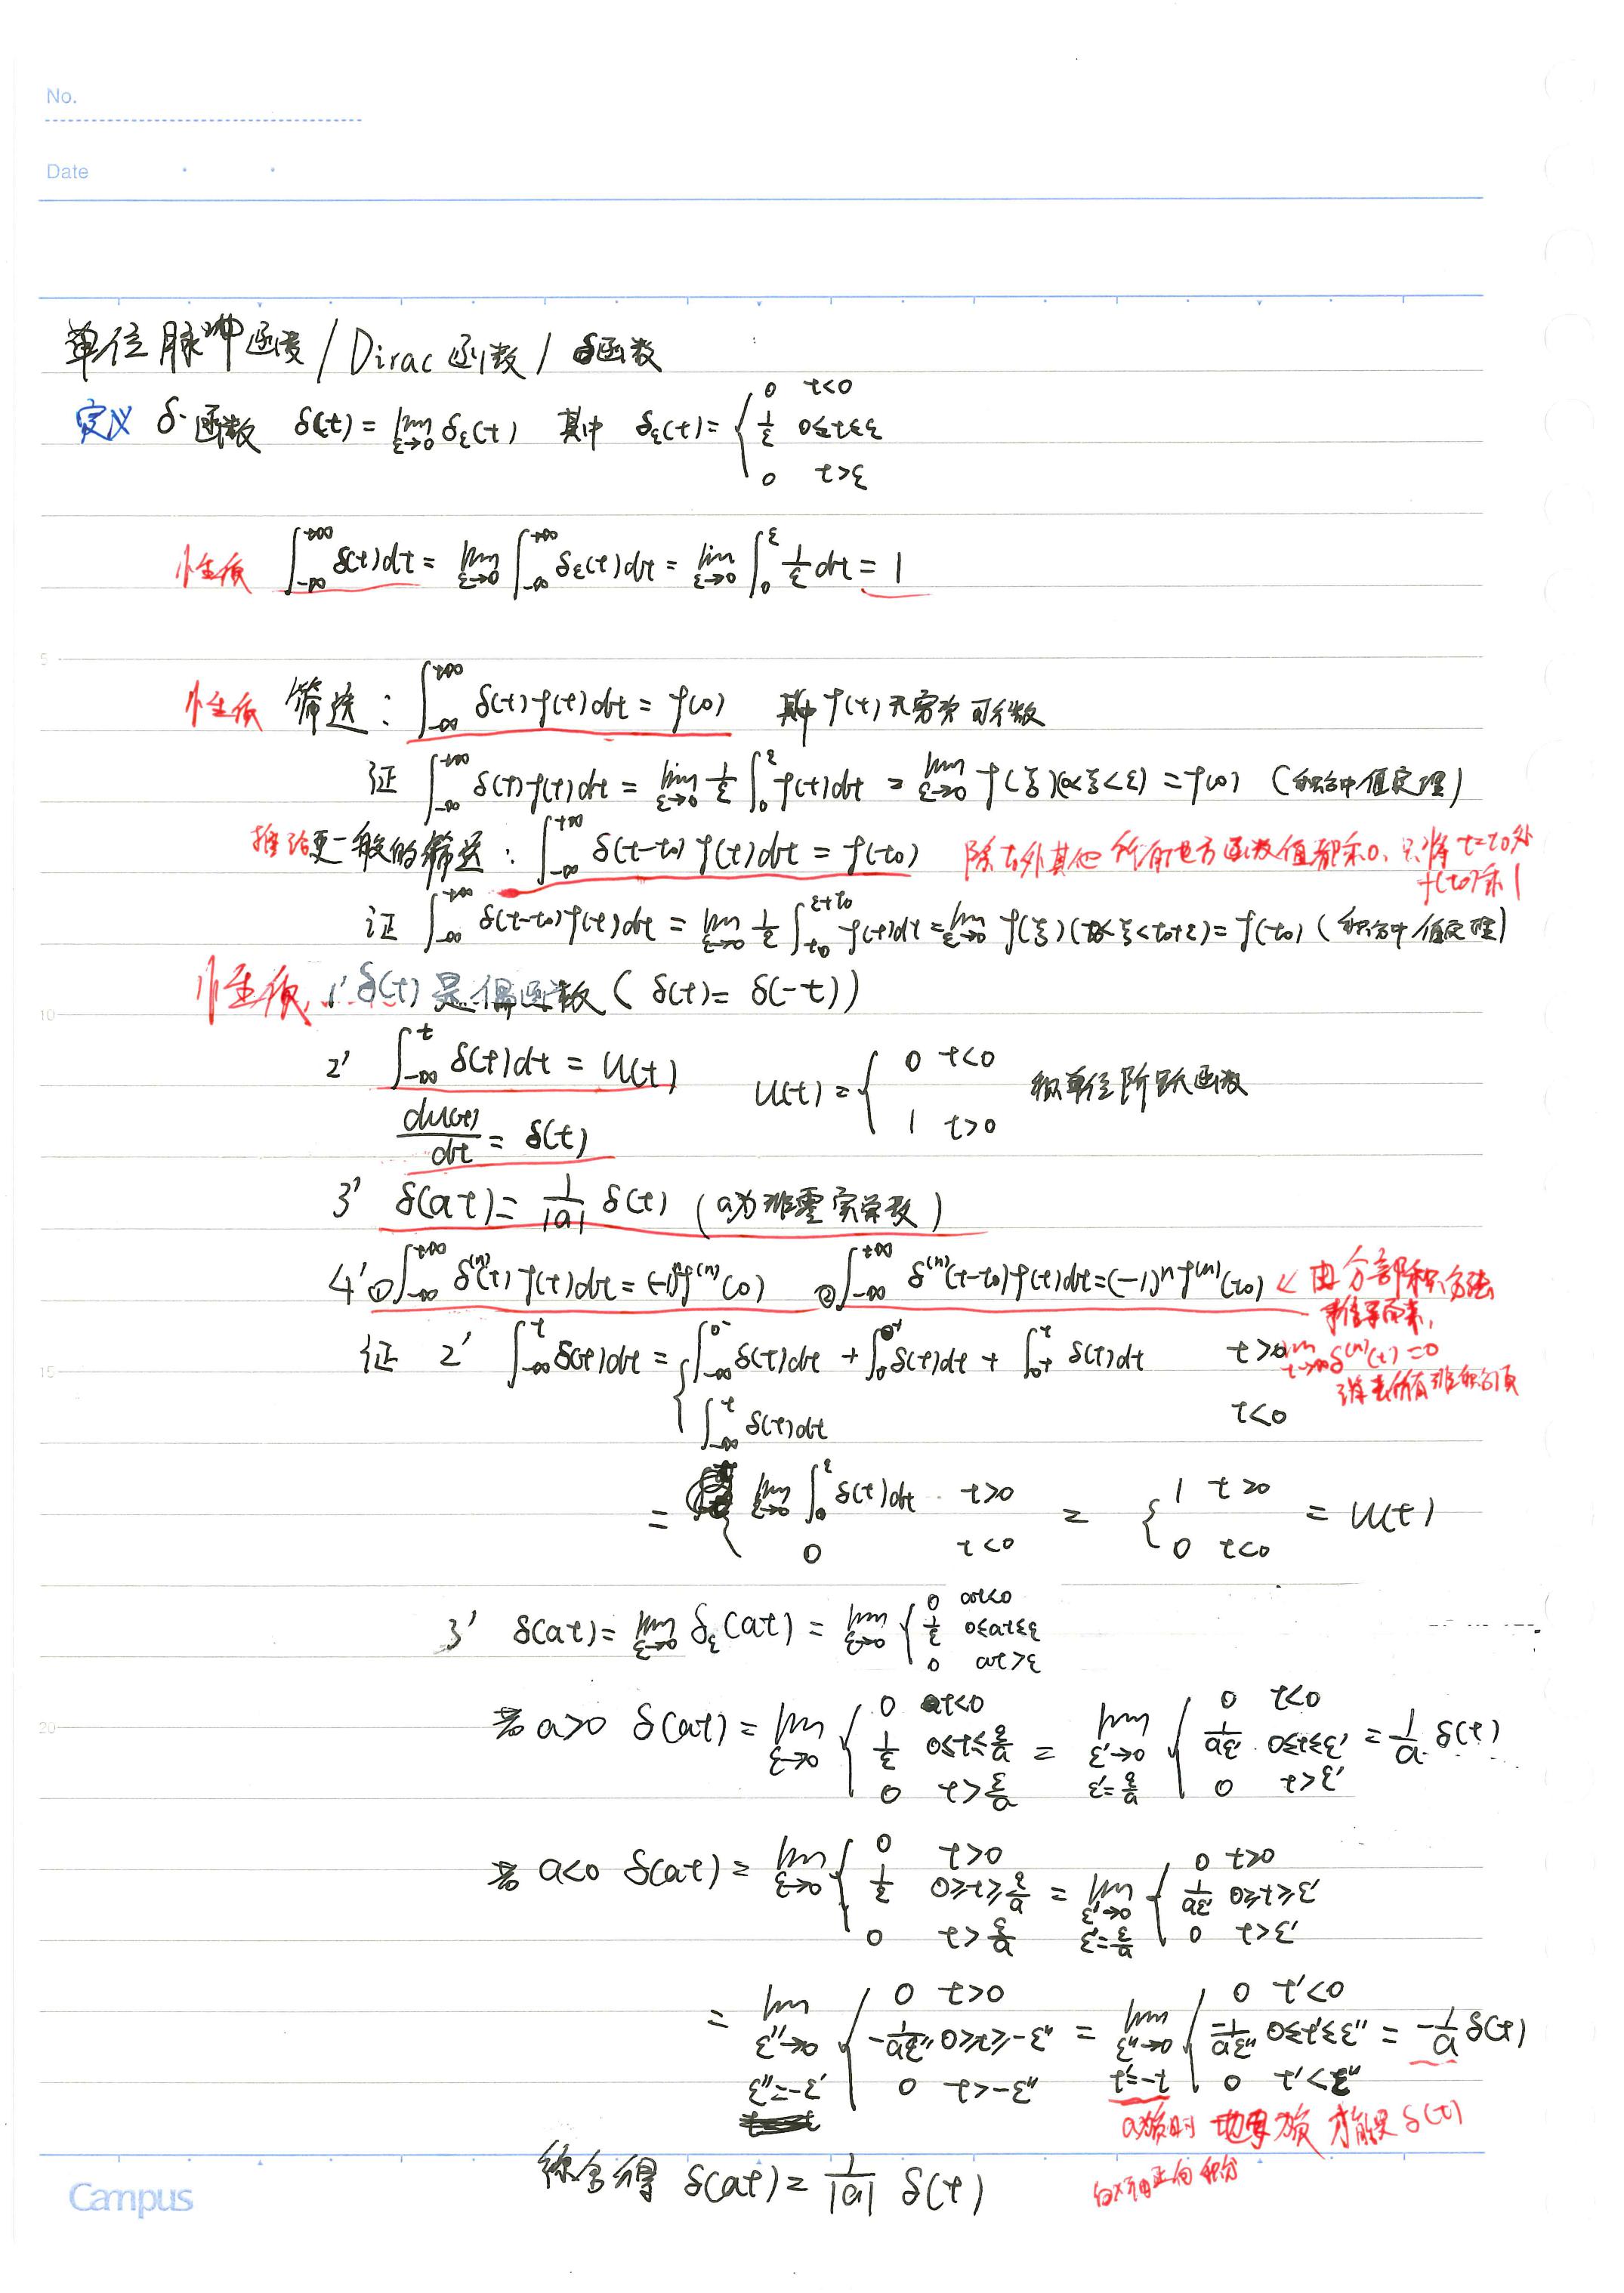 No.
Date
单位脉冲函数 / Dirac 函数 / δ函数
定义 δ-函数 δ(t) = lim_{ε→0} δ_ε(t) 其中 δ_ε(t) = { 0 t<0 ; 1/ε 0≤t≤ε ; 0 t>ε
性质 ∫_{-∞}^{+∞} δ(t)dt = lim_{ε→0} ∫_{-∞}^{+∞} δ_ε(t)dt = lim_{ε→0} ∫_0^ε 1/ε dt = 1
5
性质 筛选: ∫_{-∞}^{+∞} δ(t)f(t)dt = f(0) 其中 f(t) 无穷次可微
证 ∫_{-∞}^{+∞} δ(t)f(t)dt = lim_{ε→0} 1/ε ∫_0^ε f(t)dt = lim_{ε→0} f(ξ)(0<ξ<ε) = f(0) (积分中值定理)
更一般的筛选: ∫_{-∞}^{+∞} δ(t-t0) f(t)dt = f(t0) 除t0外其他所有地方函数值都乘0, 只将t=t0处
f(t0)乘1
证 ∫_{-∞}^{+∞} δ(t-t0)f(t)dt = lim_{ε→0} 1/ε ∫_{t0}^{ε+t0} f(t)dt = lim_{ε→0} f(ξ)(t0<ξ<t0+ε) = f(t0) (积分中值定理)
性质 1' δ(t) 是偶函数 ( δ(t) = δ(-t))
10
2' ∫_{-∞}^t δ(t)dt = u(t) u(t) = { 0 t<0 ; 1 t>0 称单位阶跃函数
du(t)/dt = δ(t)
3' δ(at) = 1/|a| δ(t) (a为非零实常数)
4' ① ∫_{-∞}^{+∞} δ^(n)(t) f(t)dt = (-1)^n f^(n)(0) ② ∫_{-∞}^{+∞} δ^(n)(t-t0)f(t)dt = (-1)^n f^(n)(t0) ← 由分部积分法
推导而来,
15
证 2' ∫_{-∞}^t δ(t)dt = { ∫_{-∞}^{0-} δ(t)dt + ∫_{0-}^{0+} δ(t)dt + ∫_{0+}^t δ(t)dt t>0 ; ∫_{-∞}^t δ(t)dt t<0
lim_{t→∞} δ^(n)(t) = 0
= { lim_{ε→0} ∫_0^ε δ(t)dt t>0 ; 0 t<0 = { 1 t>0 ; 0 t<0 = u(t)
3' δ(at) = lim_{ε→0} δ_ε(at) = lim_{ε→0} { 0 at<0 ; 1/ε 0≤at≤ε ; 0 at>ε
20
若 a>0 δ(at) = lim_{ε→0} { 0 t<0 ; 1/ε 0≤t≤ε/a ; 0 t>ε/a = lim_{ε'→0, ε'=ε/a} { 0 t<0 ; 1/(aε') 0≤t≤ε' ; 0 t>ε' = 1/a δ(t)
若 a<0 δ(at) = lim_{ε→0} { 0 t>0 ; 1/ε 0≥t≥ε/a ; 0 t>ε/a = lim_{ε'→0, ε'=ε/a} { 0 t>0 ; 1/(aε') 0≥t≥ε' ; 0 t>ε'
= lim_{ε''→0, ε''=-ε'} { 0 t>0 ; -1/(aε'') 0≥t≥-ε'' ; 0 t>-ε'' = lim_{ε''→0, t'=-t} { 0 t'<0 ; -1/(aε'') 0≤t'≤ε'' ; 0 t'<ε'' = -1/a δ(t)
a为负时 也要为负 才能是 δ(t)
综合得 δ(at) = 1/|a| δ(t)
Campus